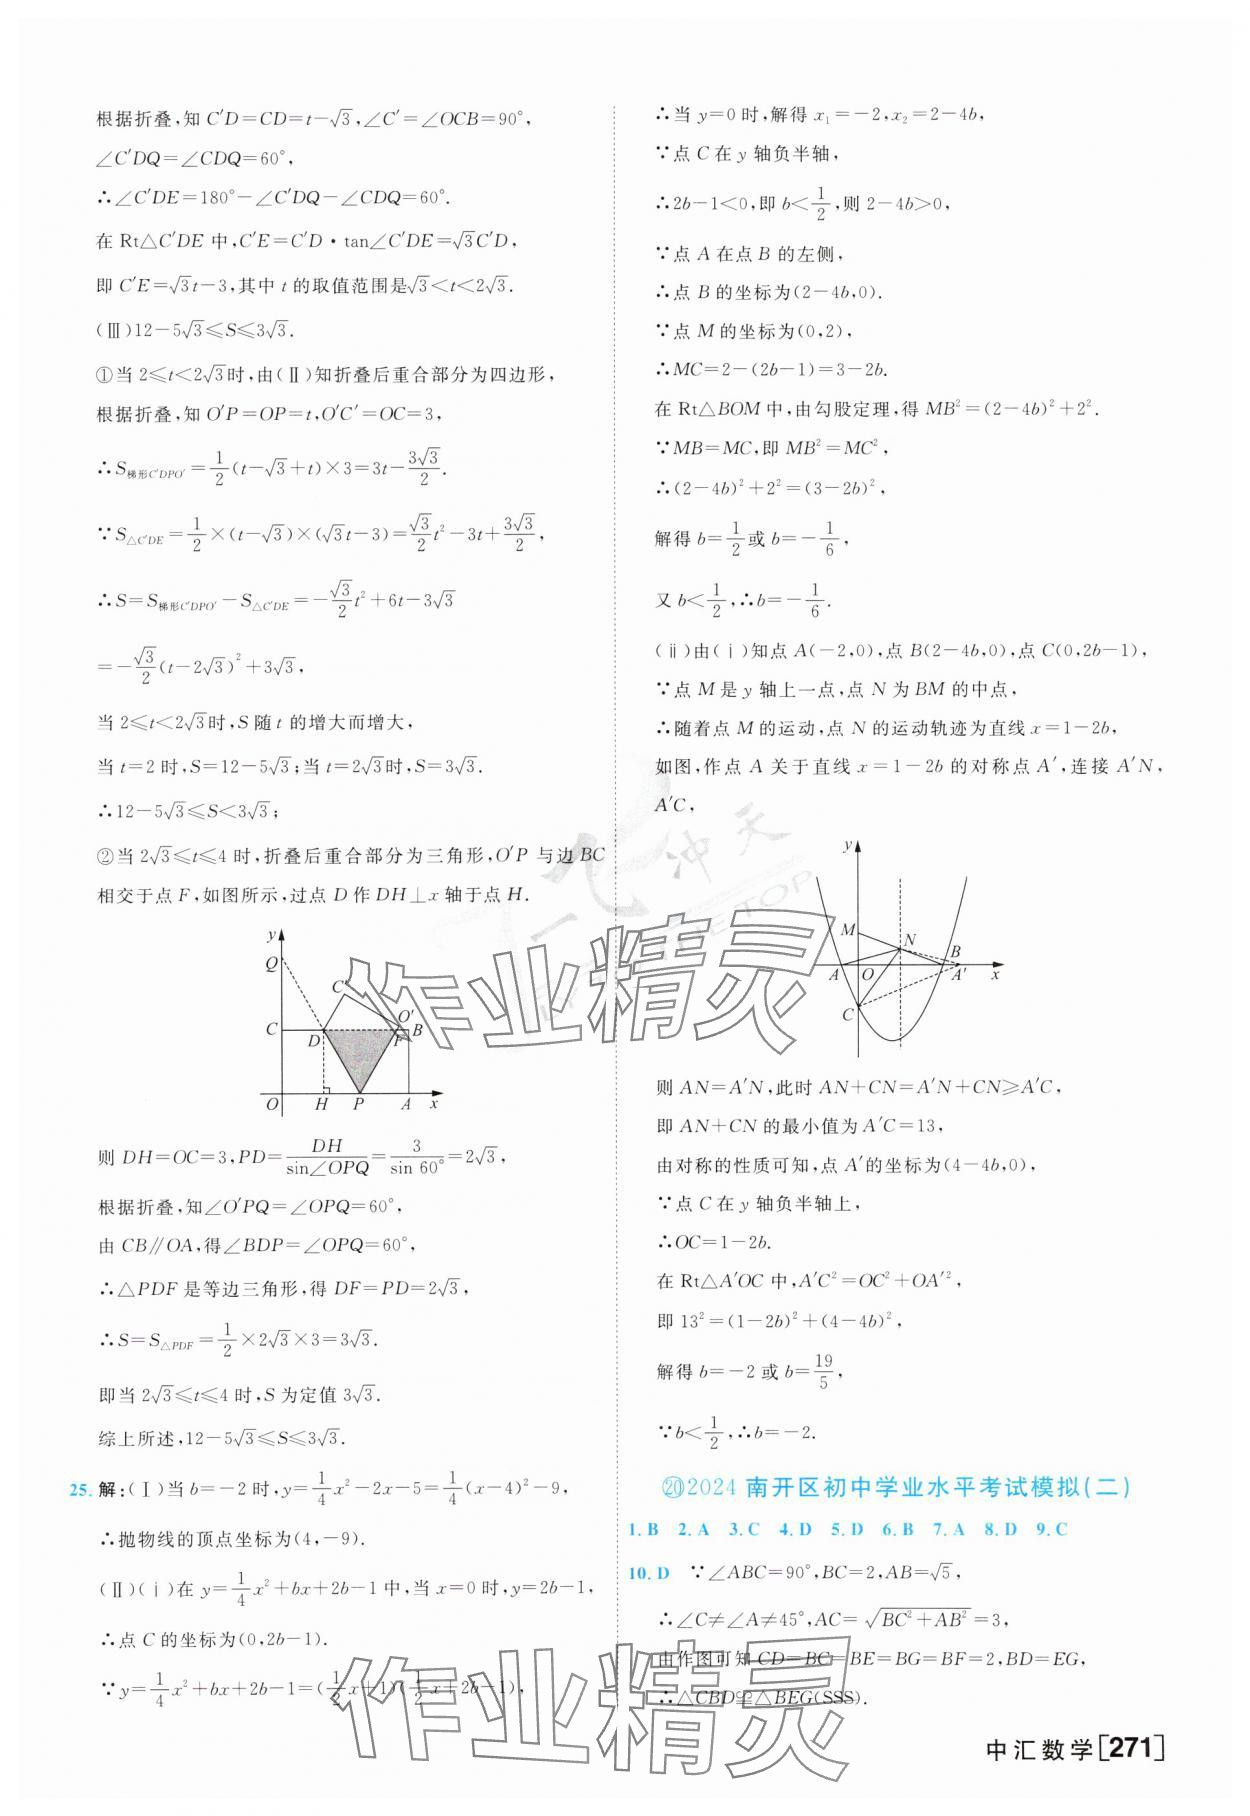 根据折叠,知 C′D=CD=t-√3,∠C′=∠OCB=90°,
∠C′DQ=∠CDQ=60°,
∴∠C′DE=180°-∠C′DQ-∠CDQ=60°.
在 Rt△C′DE 中,C′E=C′D·tan∠C′DE=√3C′D,
即 C′E=√3t-3,其中 t 的取值范围是√3<t<2√3.
(Ⅲ)12-5√3≤S≤3√3.
①当 2≤t<2√3时,由(Ⅱ)知折叠后重合部分为四边形,
根据折叠,知 O′P=OP=t,O′C′=OC=3,
∴S梯形C′DPO′=1/2(t-√3+t)×3=3t-3√3/2.
∵S△C′DE=1/2×(t-√3)×(√3t-3)=√3/2t²-3t+3√3/2,
∴S=S梯形C′DPO′-S△C′DE=-√3/2t²+6t-3√3
=-√3/2(t-2√3)²+3√3,
当 2≤t<2√3时,S 随 t 的增大而增大,
当 t=2 时,S=12-5√3;当 t=2√3时,S=3√3.
∴12-5√3≤S<3√3;
②当 2√3≤t≤4 时,折叠后重合部分为三角形,O′P 与边 BC
相交于点 F,如图所示,过点 D 作 DH⊥x 轴于点 H.
y
Q
C′
O′
C D F B
O H P A x
则 DH=OC=3,PD=DH/sin∠OPQ=3/sin 60°=2√3,
根据折叠,知∠O′PQ=∠OPQ=60°,
由 CB∥OA,得∠BDP=∠OPQ=60°,
∴△PDF 是等边三角形,得 DF=PD=2√3,
∴S=S△PDF=1/2×2√3×3=3√3.
即当 2√3≤t≤4 时,S 为定值 3√3.
综上所述,12-5√3≤S≤3√3.
25. 解:(Ⅰ)当 b=-2 时,y=1/4x²-2x-5=1/4(x-4)²-9,
∴抛物线的顶点坐标为(4,-9).
(Ⅱ)(ⅰ)在 y=1/4x²+bx+2b-1 中,当 x=0 时,y=2b-1,
∴点 C 的坐标为(0,2b-1).
∵y=1/4x²+bx+2b-1=(1/2x+1)(1/2x+2b-1),
∴当 y=0 时,解得 x₁=-2,x₂=2-4b,
∵点 C 在 y 轴负半轴,
∴2b-1<0,即 b<1/2,则 2-4b>0,
∵点 A 在点 B 的左侧,
∴点 B 的坐标为(2-4b,0).
∵点 M 的坐标为(0,2),
∴MC=2-(2b-1)=3-2b.
在 Rt△BOM 中,由勾股定理,得 MB²=(2-4b)²+2².
∵MB=MC,即 MB²=MC²,
∴(2-4b)²+2²=(3-2b)²,
解得 b=1/2或 b=-1/6,
又 b<1/2,∴b=-1/6.
(ⅱ)由(ⅰ)知点 A(-2,0),点 B(2-4b,0),点 C(0,2b-1),
∵点 M 是 y 轴上一点,点 N 为 BM 的中点,
∴随着点 M 的运动,点 N 的运动轨迹为直线 x=1-2b,
如图,作点 A 关于直线 x=1-2b 的对称点 A′,连接 A′N,
A′C,
y
M N B
A O A′ x
C
则 AN=A′N,此时 AN+CN=A′N+CN≥A′C,
即 AN+CN 的最小值为 A′C=13,
由对称的性质可知,点 A′的坐标为(4-4b,0),
∵点 C 在 y 轴负半轴上,
∴OC=1-2b.
在 Rt△A′OC 中,A′C²=OC²+OA′²,
即 13²=(1-2b)²+(4-4b)²,
解得 b=-2 或 b=19/5,
∵b<1/2,∴b=-2.
⑳2024 南开区初中学业水平考试模拟(二)
1. B 2. A 3. C 4. D 5. D 6. B 7. A 8. D 9. C
10. D ∵∠ABC=90°,BC=2,AB=√5,
∴∠C≠∠A≠45°,AC=√(BC²+AB²)=3,
由作图可知 CD=BC=BE=BG=BF=2,BD=EG,
∴△CBD≌△BEG(SSS).
中汇数学[271]
作业精灵
作业精灵
一飞冲天